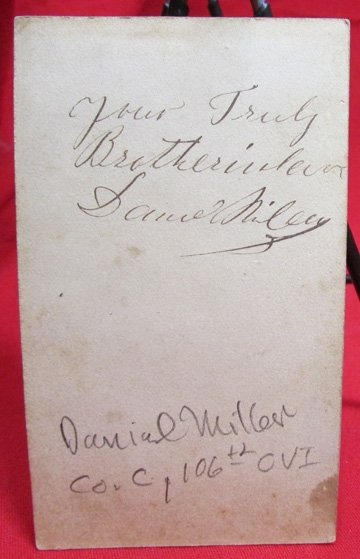 Your Truly
Brotherinlaw
Daniel Miley
Danial Miller
Co. C, 106th OVI